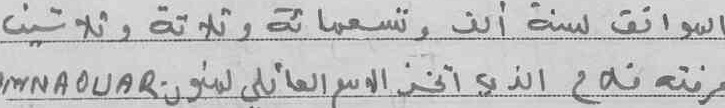 الموافق لسنة ألف وتسعمائة وثلاثة وثلاثين
فلاح الذي اتخذ الاسم العائلي لمنور MNAOUAR